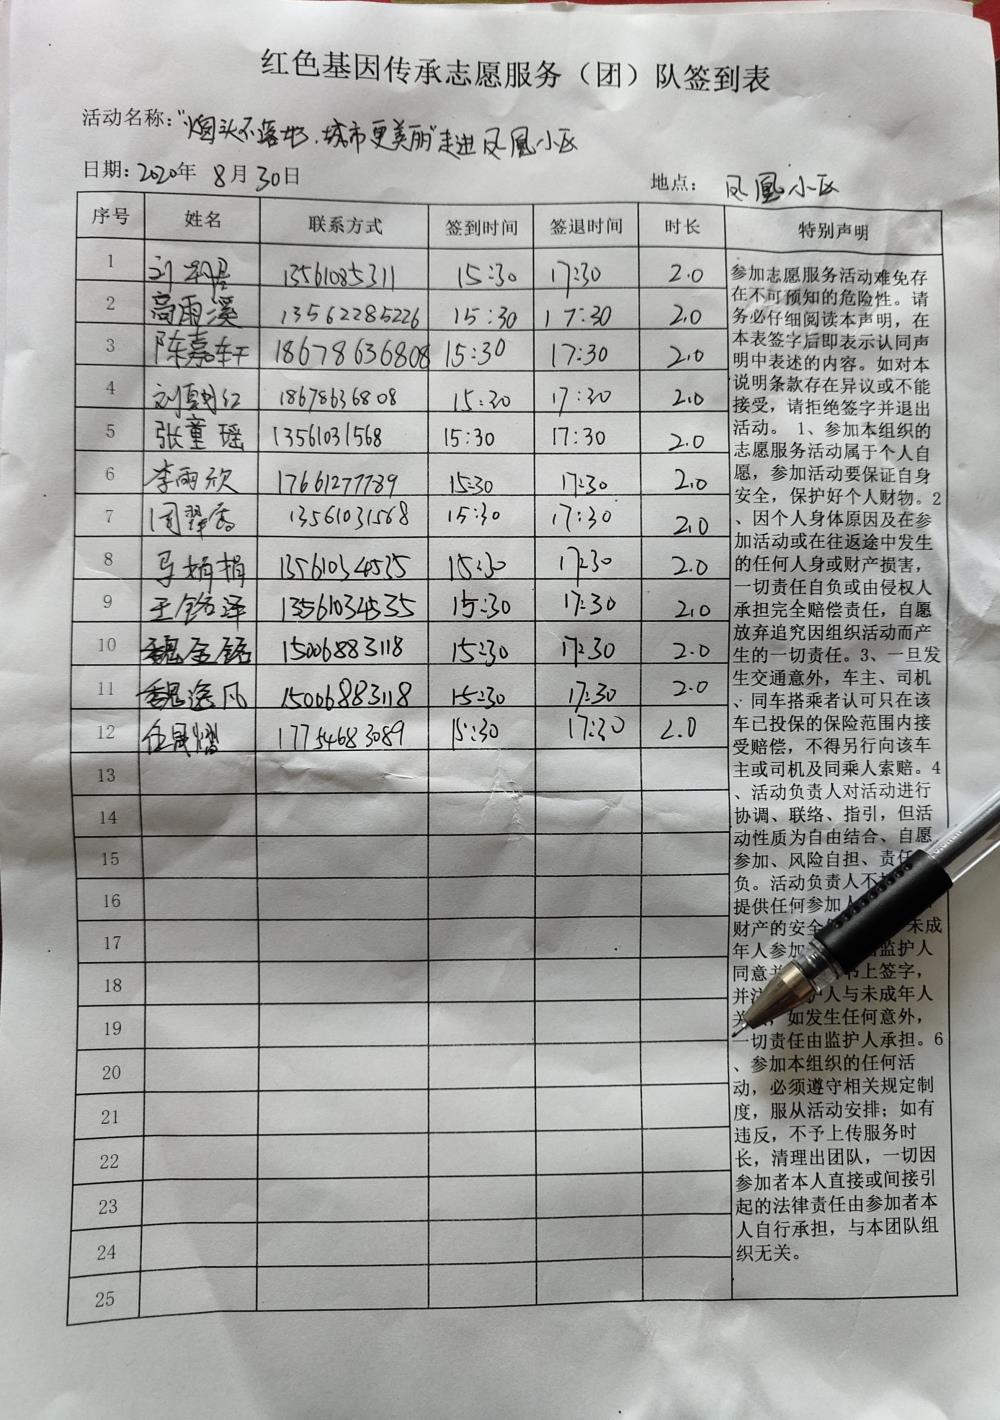 红色基因传承志愿服务（团）队签到表
活动名称：“烟头不落地，城市更美丽”走进凤凰小区
日期：2020年 8月30日 地点： 凤凰小区
序号 姓名 联系方式 签到时间 签退时间 时长 特别声明
1 13561085311 15:30 17:30 2.0
2 高雨溪 13562285226 15:30 17:30 2.0
3 陈嘉轩 18678636808 15:30 17:30 2.0
4 18678636808 15:30 17:30 2.0
5 张童瑶 13561031568 15:30 17:30 2.0
6 李雨欣 17661277789 15:30 17:30 2.0
7 周翠香 13561031568 15:30 17:30 2.0
8 马娟娟 13561034535 15:30 17:30 2.0
9 王铭泽 13561034535 15:30 17:30 2.0
10 魏金铭 15006883118 15:30 17:30 2.0
11 魏逸凡 15006883118 15:30 17:30 2.0
12 17754683089 15:30 17:30 2.0
13
14
15
16
17
18
19
20
21
22
23
24
25
参加志愿服务活动难免存
在不可预知的危险性。请
务必仔细阅读本声明，在
本表签字后即表示认同声
明中表述的内容。如对本
说明条款存在异议或不能
接受，请拒绝签字并退出
活动。 1、参加本组织的
志愿服务活动属于个人自
愿，参加活动要保证自身
安全，保护好个人财物。2
、因个人身体原因及在参
加活动或在往返途中发生
的任何人身或财产损害，
一切责任自负或由侵权人
承担完全赔偿责任，自愿
放弃追究因组织活动而产
生的一切责任。3、一旦发
生交通意外，车主、司机
、同车搭乘者认可只在该
车已投保的保险范围内接
受赔偿，不得另行向该车
主或司机及同乘人索赔。4
、活动负责人对活动进行
协调、联络、指引，但活
动性质为自由结合、自愿
参加、风险自担、责任
负。活动负责人不
提供任何参加人
财产的安全 未成
年人参加 监护人
同意并 书上签字，
并 护人与未成年人
关 ，如发生任何意外，
一切责任由监护人承担。6
、参加本组织的任何活
动，必须遵守相关规定制
度，服从活动安排；如有
违反，不予上传服务时
长，清理出团队，一切因
参加者本人直接或间接引
起的法律责任由参加者本
人自行承担，与本团队组
织无关。